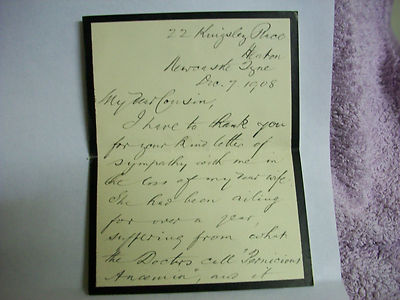 22 Kingsley Place
Heaton
Newcastle Tyne
Dec. 7 1908
My Dear Cousin,
I have to thank you
for your kind letter of
sympathy with me in
the loss of my dear wife
She had been ailing
for over a year,
suffering from what
the Doctors call "Pernicious
Anaemia", and it